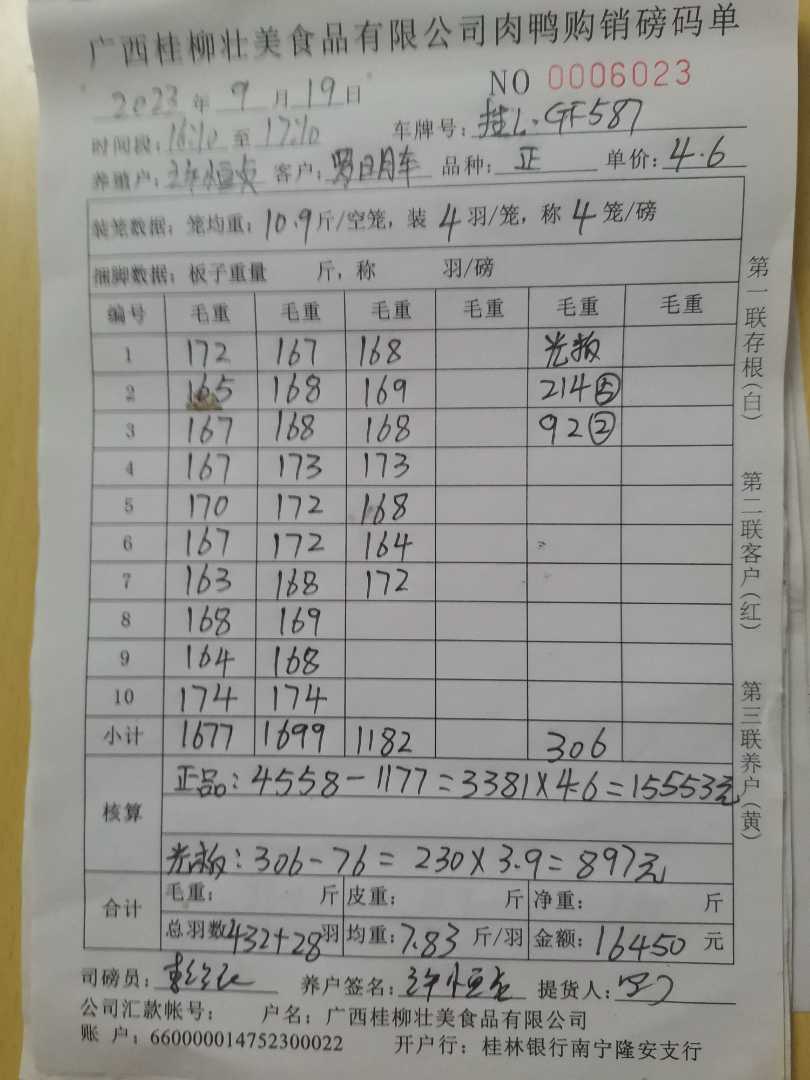 广西桂柳壮美食品有限公司肉鸭购销磅码单
NO 0006023
2023 年 9 月 19 日
时间段: 16:10 至 17:10 车牌号: 桂L·GF587
养殖户: 许恒 客户: 罗日月车 品种: 正 单价: 4.6
装笼数据: 笼均重: 10.9 斤/空笼, 装 4 羽/笼, 称 4 笼/磅
捆脚数据: 板子重量 斤, 称 羽/磅
编号 毛重 毛重 毛重 毛重 毛重 毛重
1 172 167 168 光板
2 165 168 169 214⑤
3 167 168 168 92②
4 167 173 173
5 170 172 168
6 167 172 164
7 163 168 172
8 168 169
9 164 168
10 174 174
小计 1677 1699 1182 306
核算
正品: 4558-1177=3381×4.6=15553元
光板: 306-76=230×3.9=897元
合计
毛重: 斤 皮重: 斤 净重: 斤
总羽数 432+28 羽 均重: 7.83 斤/羽 金额: 16450 元
司磅员: 养户签名: 许恒 提货人:
公司汇款帐号: 户名: 广西桂柳壮美食品有限公司
账 户: 660000014752300022 开户行: 桂林银行南宁隆安支行
第一联存根(白) 第二联客户(红) 第三联养户(黄)